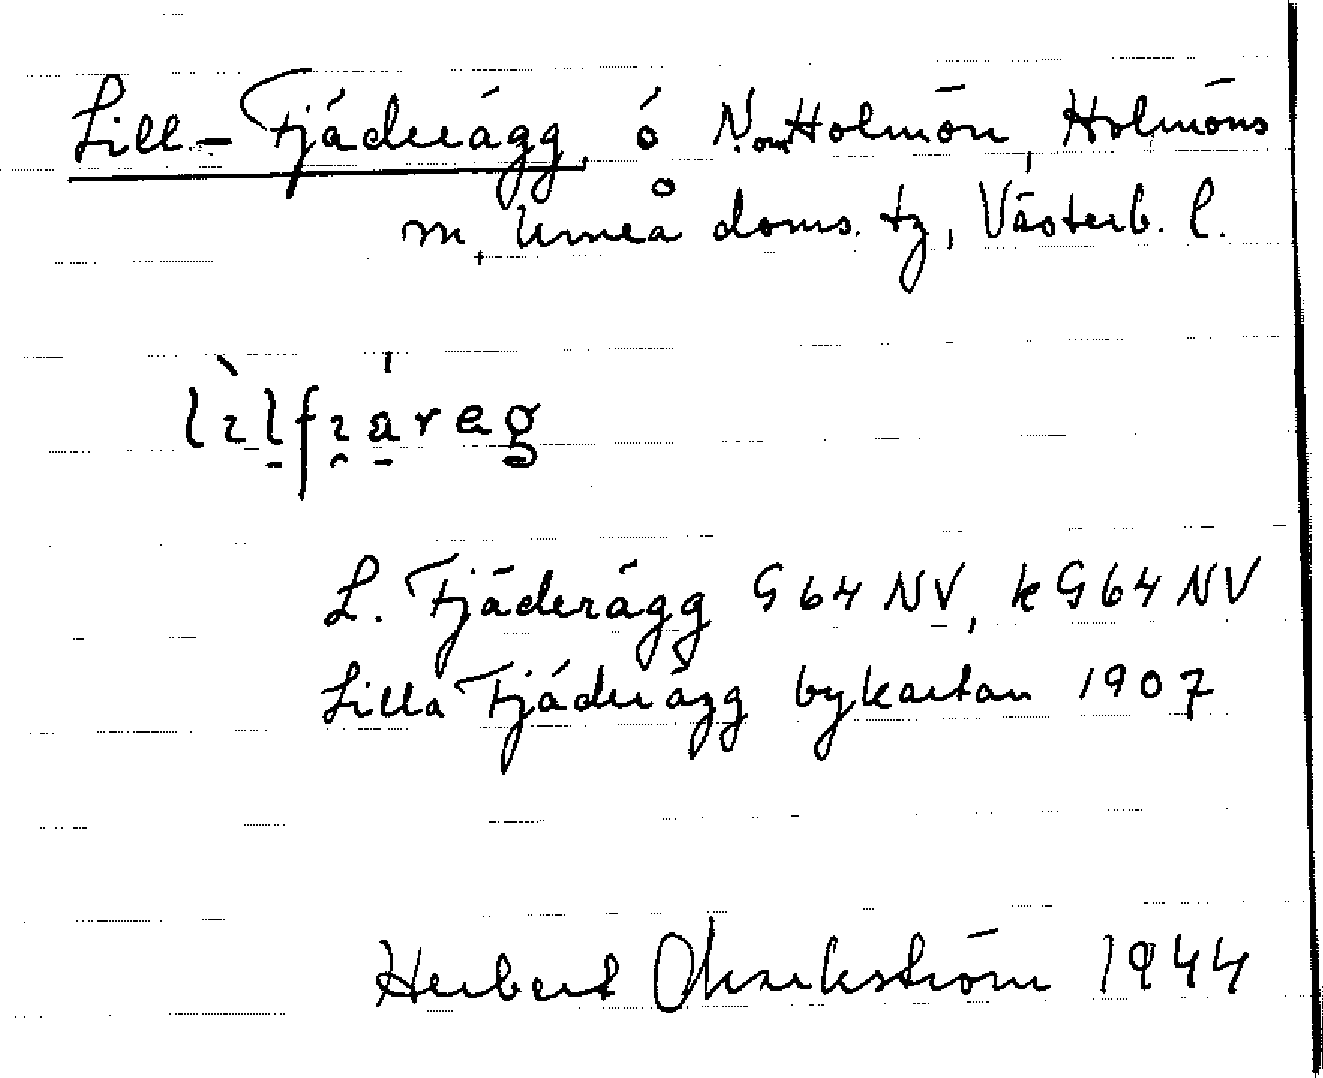 Lill-Fjäderägg, ö N. om Holmön, Holmöns
m, Umeå doms. tg, Västerb. l.
L. Fjäderägg G64NV, kG64NV
Lilla Fjäderägg bykartan 1907
Herbert 1944